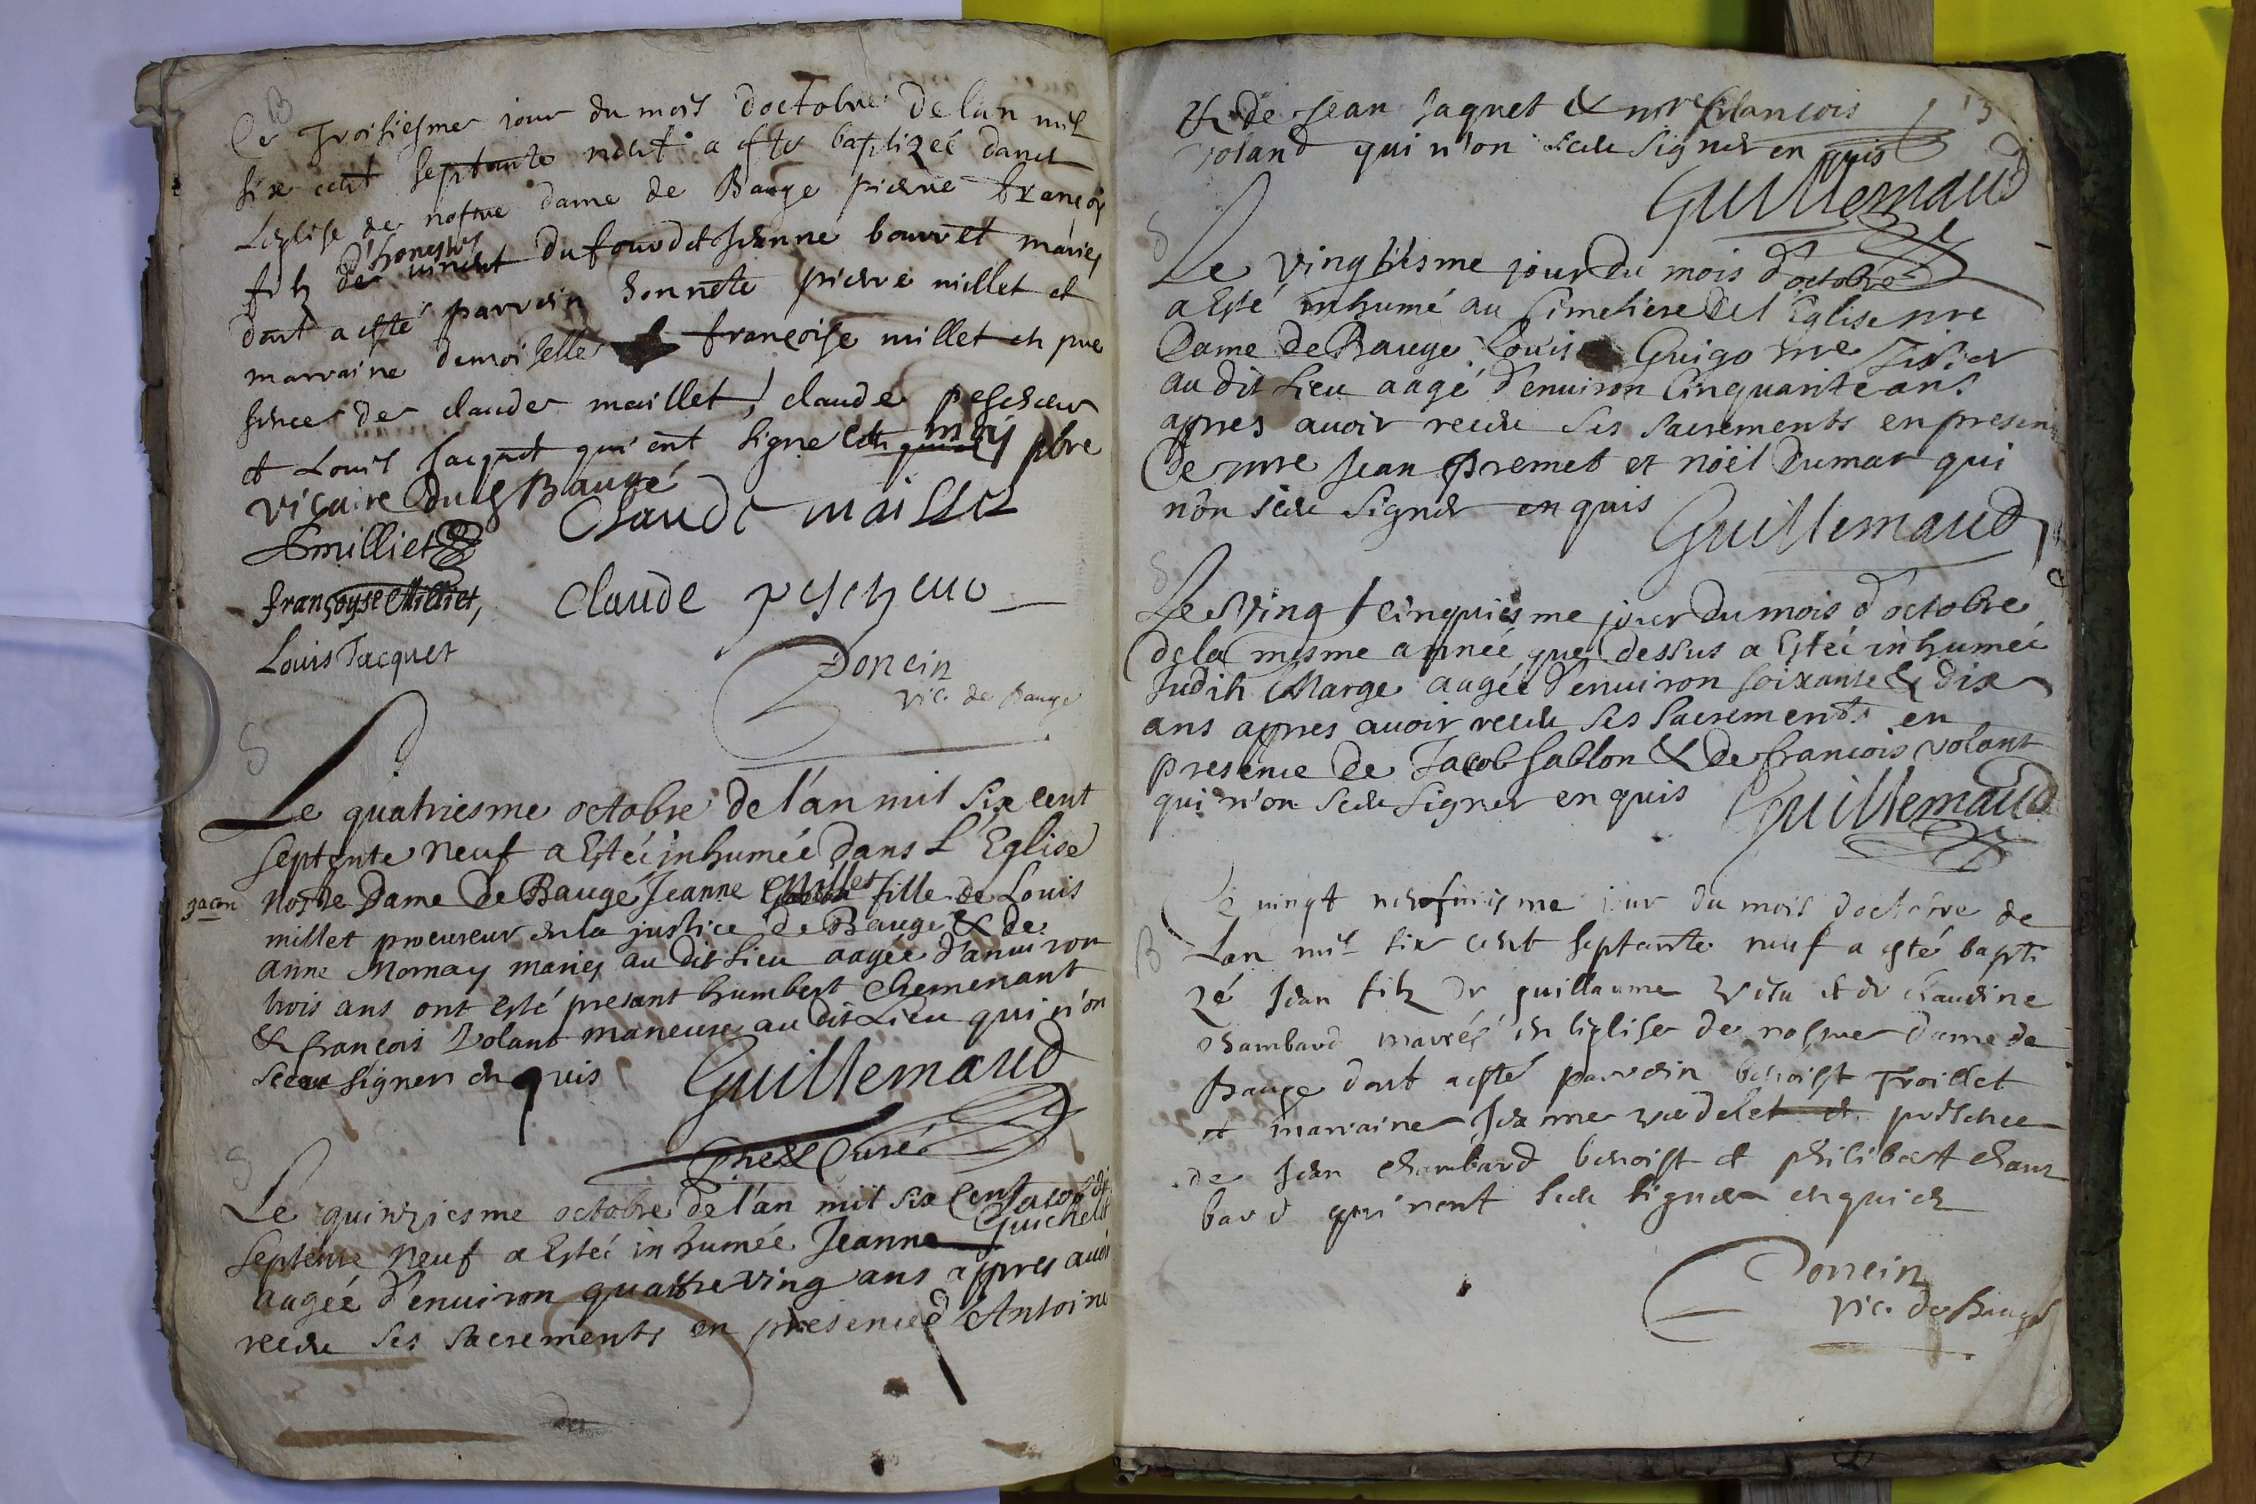 B
Ce Troisiesme jour du mois doctobre de lan mil
six cent septante neuf a este baptizeé dans
Leglise de nostre dame de Bauge pierre françois
filz d'honestes vincent Dufour et Jeanne bourret mariez
dont a esté parrein honnete pierre millet et
marraine demoiselle françoise millet en pre
sence de claude maillet, claude pescheur
et Louis Jacquet qui ont signe moy pbre
vicaire du Baugé
milliet
Claude maillet
françoyse Milliet,
Claude pescheur
Louis Jacquet
Donein
vic. de Bauge
S
Le quatriesme octobre de l'an mil six cent
septente neuf a Esteé inhumée Dans L'Eglise
nostre Dame De Baugé Jeanne Millet fille de Louis
millet procureur en la justice de Bauge & de
anne Mornay mariez au Dit Lieu aagée d'anuiron
trois ans ont esté presant humbert Chemenant
& françois Volant maneuure au dit Lieu qui n'on
sceu signer en quis
Guillemaud
Curé
S
Le quinziesme octobre de l'an mil six Cent
septente neuf a Esteé inhumée Jeanne Guichelet
aagée d'enuiron quattre ving ans appres auoir
recëu ses sacrements en presence d'Antoine
13
& de Jean Jaquet & mre francois
voland qui n'on sceu signer en quis
Guillemaud
S
Le vingtiesme jour du mois d'octobre
a Esté inhumé au Cimetiere de l'Eglise nre
Dame de Bauge Louis Guigo mre Tixier
au dit Lieu aagé d'enuiron Cinquante ans
appres auoir recëu ses sacrements en presen
de mre Jean Premet et nöel Dumar qui
n'on scëu signer en quis
Guillemaud
S
Le Vingt cinquiesme jour du mois d'octobre
de la mesme année que dessus a Esteé inhumeé
Judith Marge aagée d'enuiron soixante & dix
ans appres auoir recëu ses sacrements en
presence de Jacob sablon & de francois volant
qui n'on scëu signer en quis
Guillemaud
B
Le uingt neufuiesme iour du mois doctobre de
Lan mil six cent septante neuf a esté bapti
zé Jean filz de guillaume et de claudine
chambard mariés en leglise de nostre dame de
Bauge dont a esté parrein benoist Troillet
et marraine Jeanne vuedelet en presence
de Jean chambard benoist et philibert cham
bard qui nont sceu signer enquis
Donein
vic. de Bauge